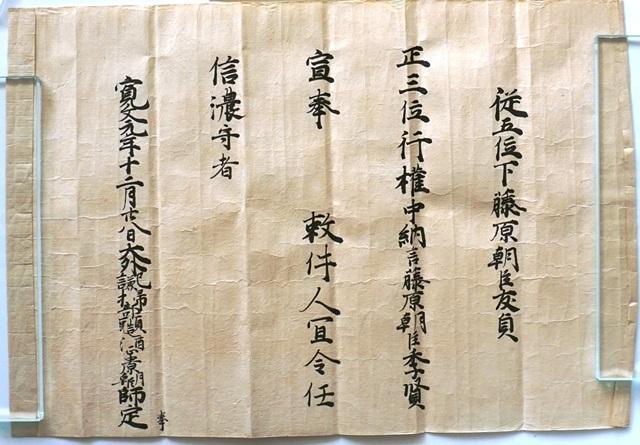 従五位下藤原朝臣友貞
正三位行権中納言藤原朝臣季賢
宣奉 敕件人宜令任
信濃守者
寛文元年十二月廿八日大外記 造酒 師定
奉